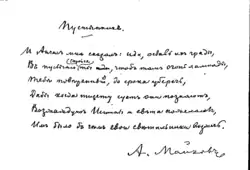 Пустынникъ.
И Ангелъ мнѣ сказалъ: иди, оставь ихъ грады,
скройся
Въ пустыню ты иди, чтобъ тамъ огонь лампады,
Тебѣ повѣренный, до срока уберечь,
Дабы когда тщету суетъ они познаютъ,
Возжаждутъ Истины и свѣта пожелаютъ,
Имъ было бъ чѣмъ свои свѣтильники возжечь.
А. Майковъ